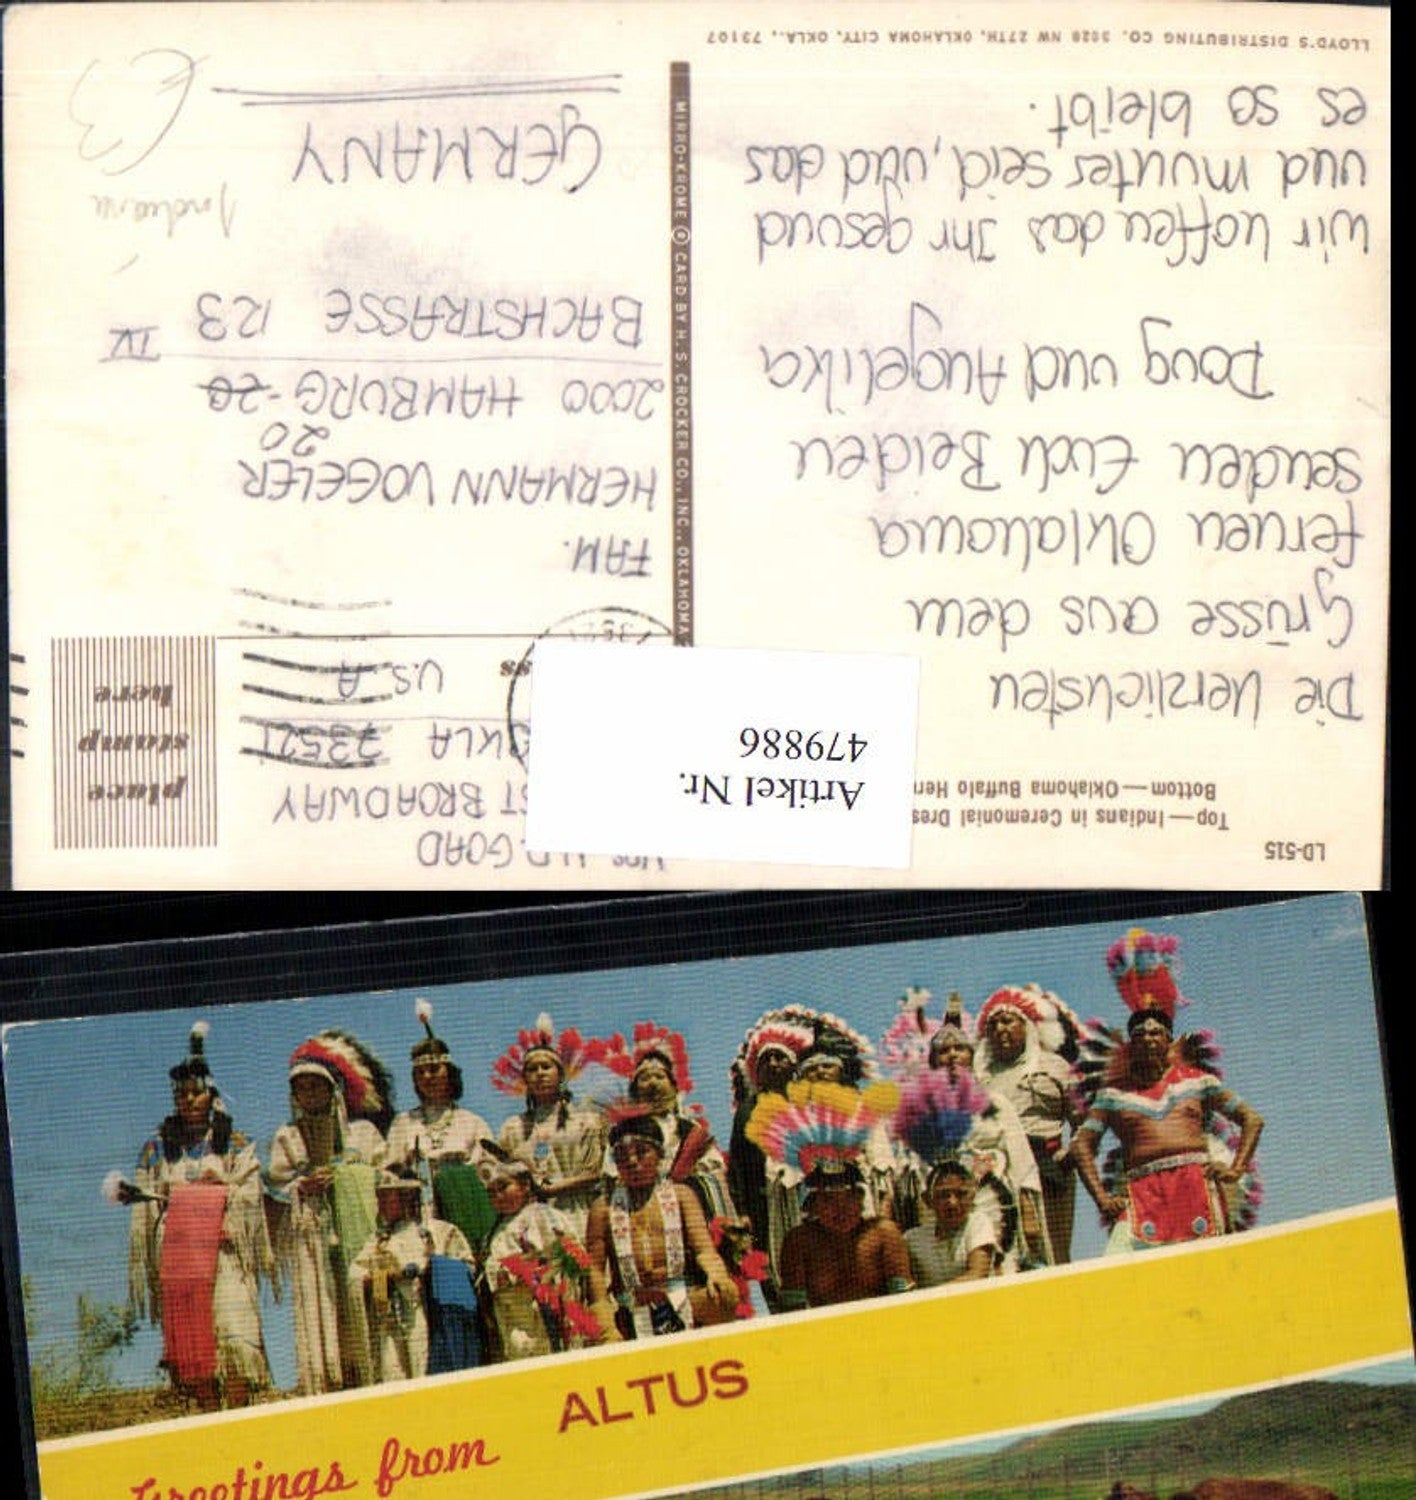 LD-515
Top—Indians in Ceremonial Dres
Bottom—Oklahoma Buffalo Her
Die herzlichsten
Grüsse aus dem
fernen Oklahoma
senden Euch Beiden
Doug und Angelika
Wir hoffen das Ihr gesund
und munter seid, und das
es so bleibt.
LLOYD'S DISTRIBUTING CO. 3028 NW 27TH, OKLAHOMA CITY, OKLA., 73107
MIRRO-KROME ® CARD BY H. S. CROCKER CO., INC., OKLAHOMA
Artikel Nr.
479886
GOAD
ST BROADWAY
OKLA 73521
U.S.A
place
stamp
here
FAM.
HERMANN VOGELER
20
2000 HAMBURG-20
BACHSTRASSE 123
IV
GERMANY
Indianer
€3
Greetings from
ALTUS